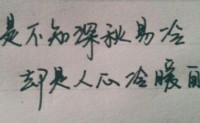 是不知深秋易冷
却是人心冷暖